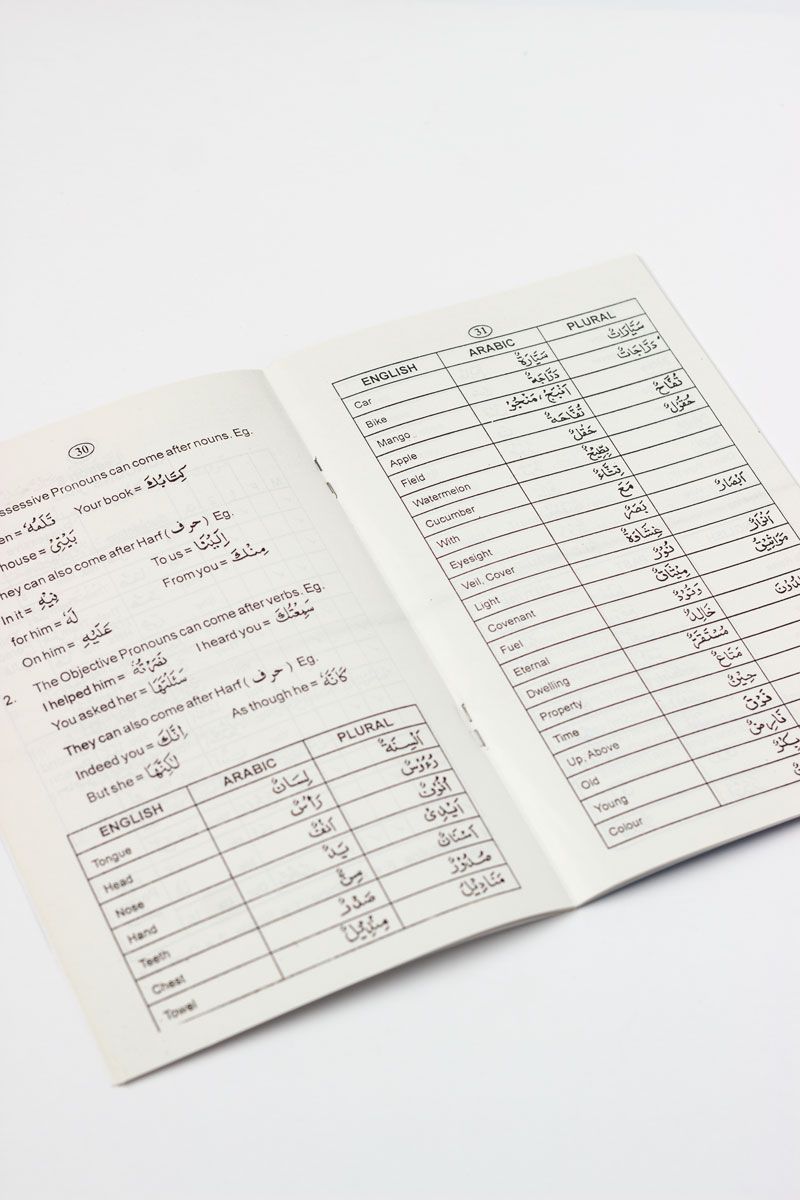 30
ssessive Pronouns can come after nouns. Eg.
en = قَلَمُهُ Your book = كِتَابُكَ
house = بَيْتِيْ
hey can also come after Harf (حرف) Eg.
In it = فِيْهِ To us = اِلَيْنَا
for him = لَهُ From you = مِنْكَ
On him = عَلَيْهِ
2. The Objective Pronouns can come after verbs. Eg.
I helped him = نَصَرْتُهُ I heard you = سَمِعْتُكَ
You asked her = سَئَلْتَهَا
They can also come after Harf (حرف) Eg.
Indeed you = اِنَّكَ As though he = كَاَنَّهُ
But she = لٰكِنَّهَا
ENGLISH ARABIC PLURAL
Tongue لِسَانٌ اَلْسِنَةٌ
Head رَأْسٌ رُءُوْسٌ
Nose اَنْفٌ اُنُوْفٌ
Hand يَدٌ اَيْدِيْ
Teeth سِنٌّ اَسْنَانٌ
Chest صَدْرٌ صُدُوْرٌ
Towel مِنْدِيْلٌ مَنَادِيْلٌ
31
ENGLISH ARABIC PLURAL
Car سَيَّارَةٌ سَيَّارَاتٌ
Bike دَرَّاجَةٌ دَرَّاجَاتٌ
Mango اَنْبَجٌ، مَنْجُوْ
Apple تُفَّاحَةٌ تُفَّاحٌ
Field حَقْلٌ حُقُوْلٌ
Watermelon بِطِّيْخٌ
Cucumber قِثَّاءٌ
With مَعَ
Eyesight بَصَرٌ اَبْصَارٌ
Veil, Cover غِشَاوَةٌ
Light نُوْرٌ اَنْوَارٌ
Covenant مِيْثَاقٌ مَوَاثِيْقُ
Fuel وَقُوْدٌ
Eternal خَالِدٌ
Dwelling
Property مَتَاعٌ
Time حِيْنٌ
Up, Above فَوْقَ
Old فَارِضٌ
Young بِكْرٌ
Colour